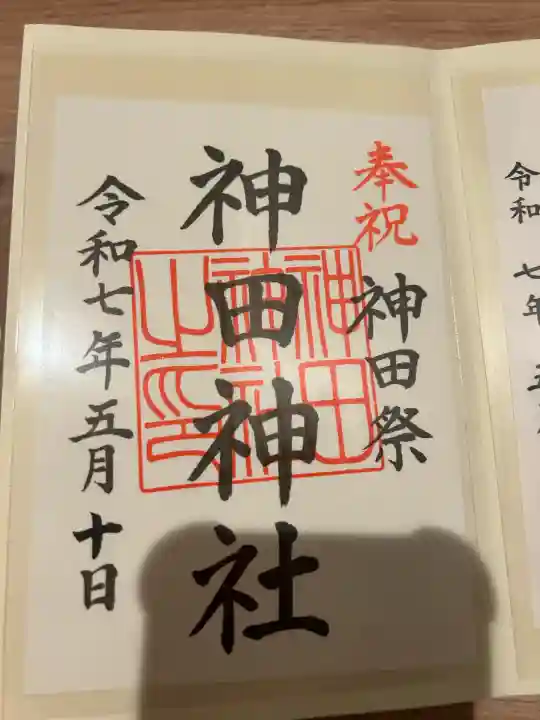 奉祝
神田祭
神田神社
令和七年五月十日
令和七年五月